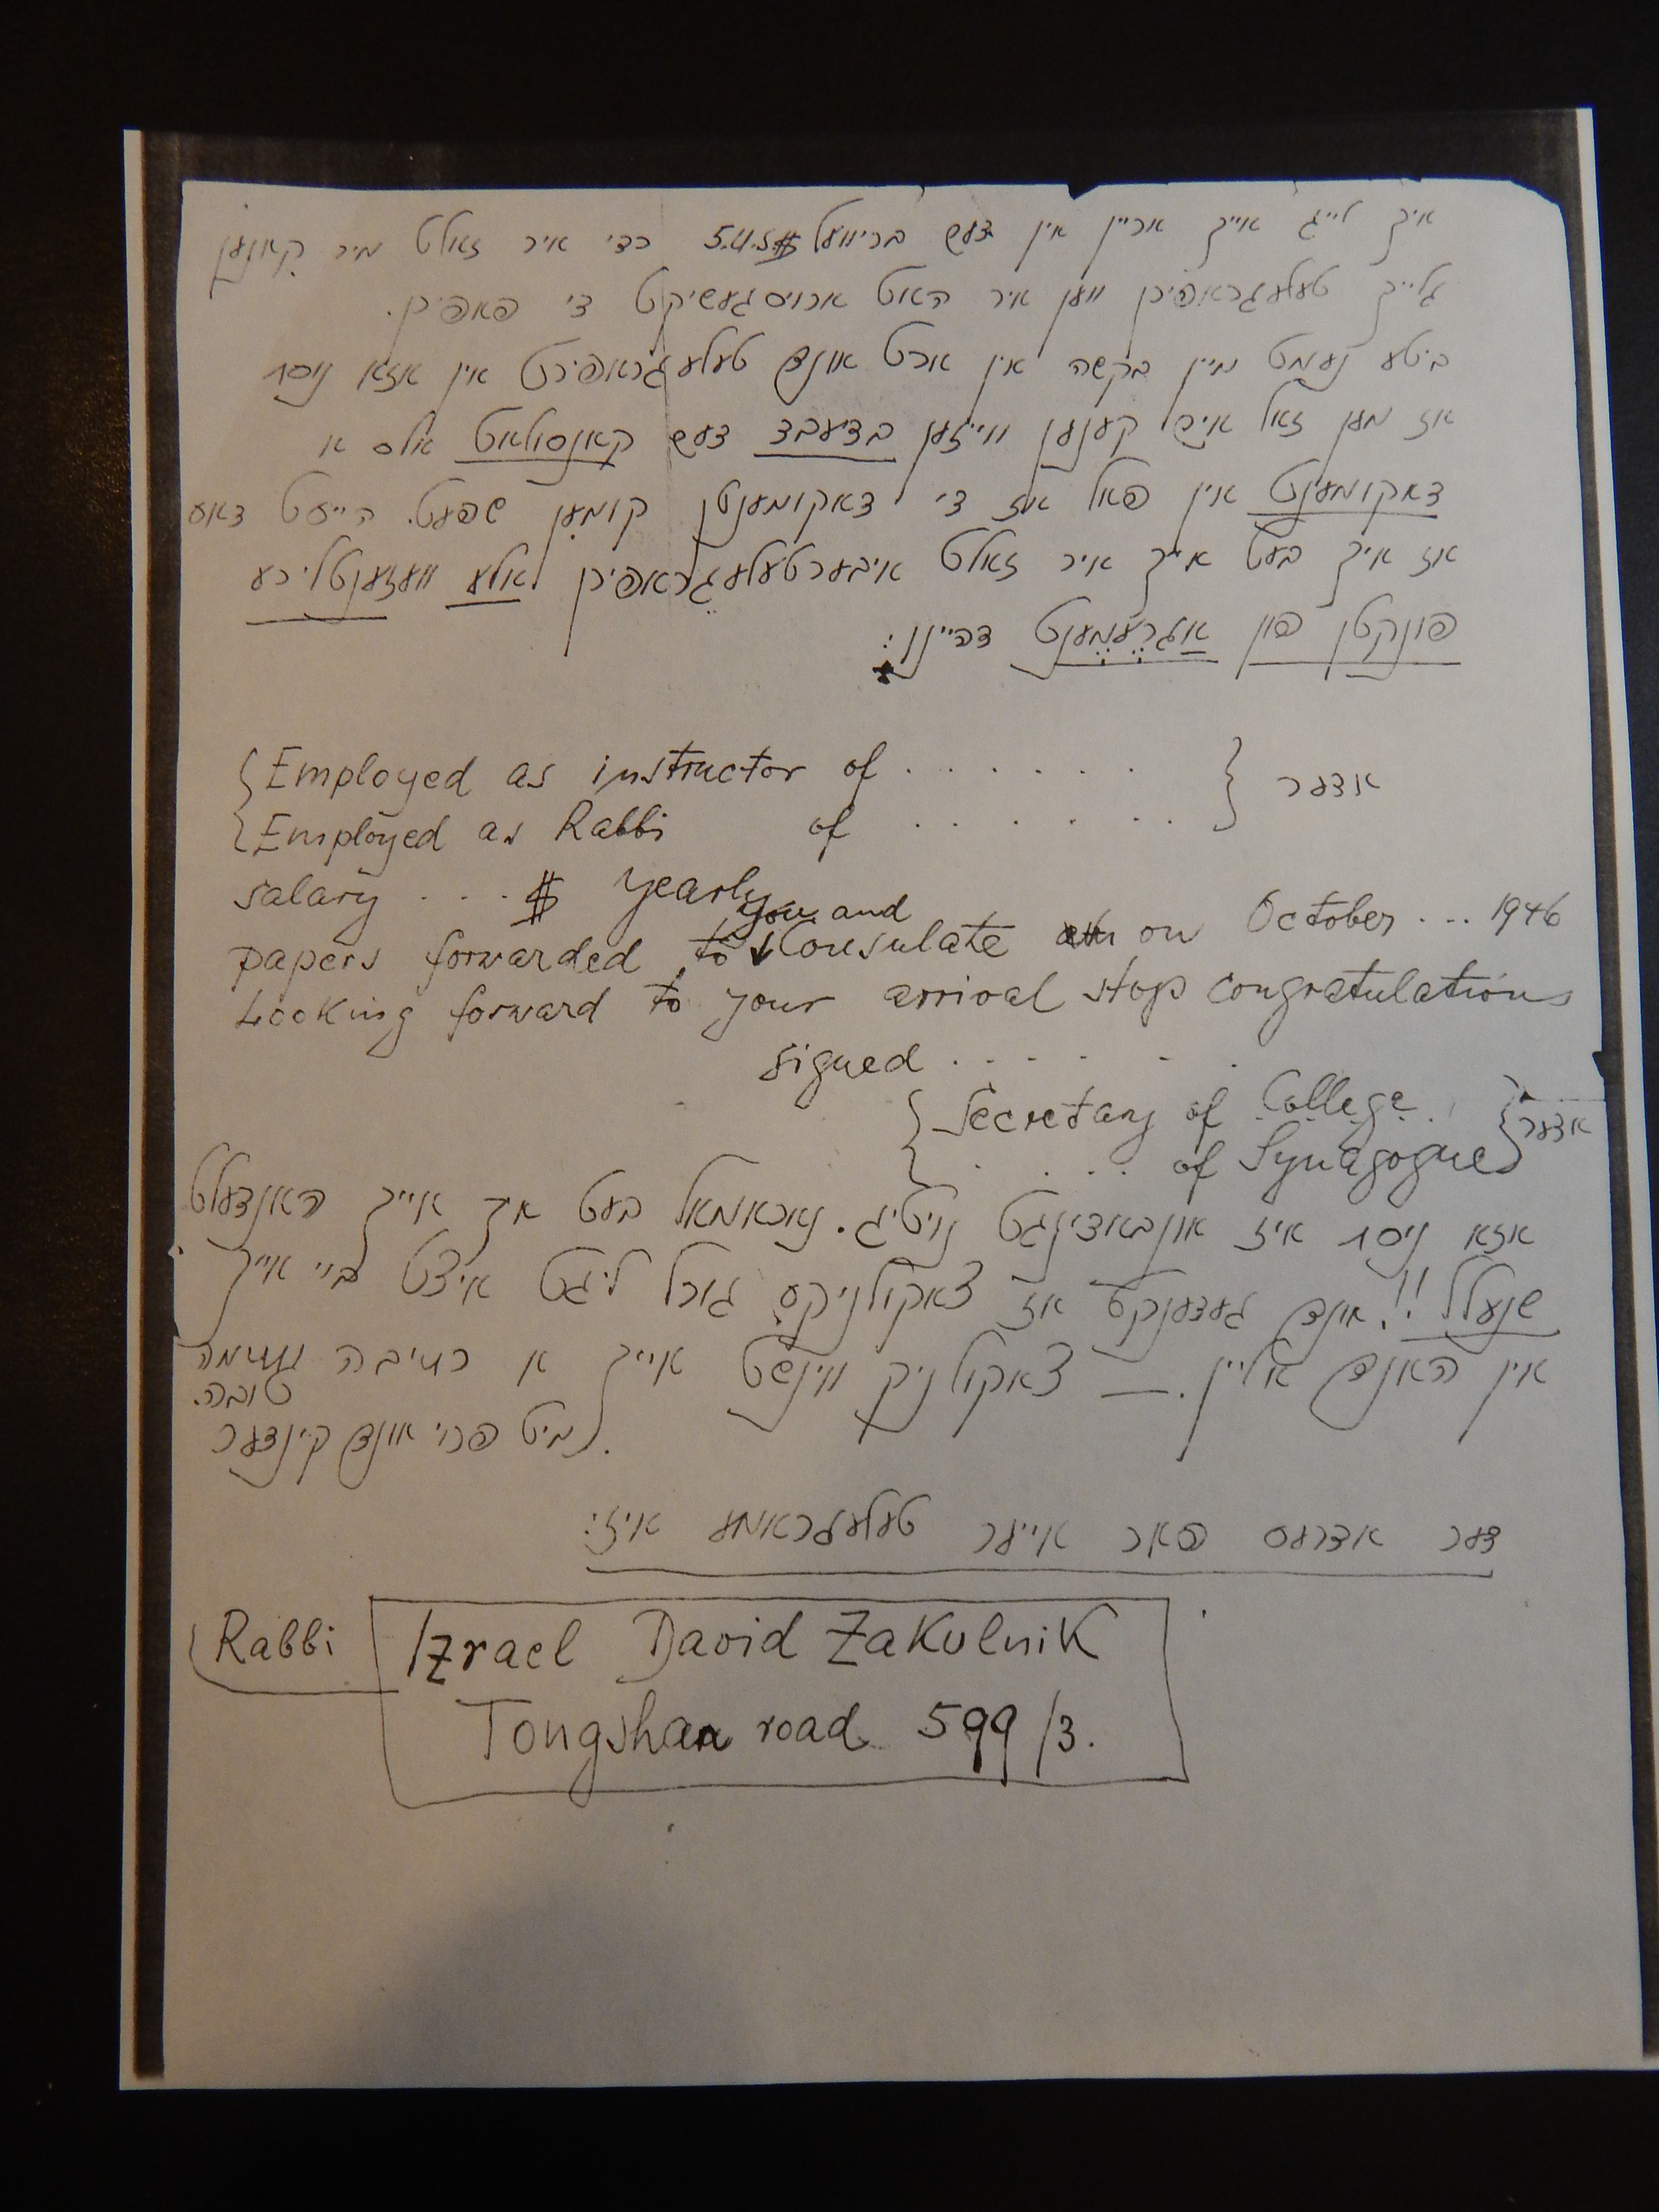 איך לייג אייך אריין אין דעם בריוועל 5.U.S.$ כדי איר זאלט מיר קאנען
גלייך טעלעגראפירן ווען איר האט ארויסגעשיקט די פאפירן.
ביטע נעמט מיין בקשה אין ארט אונד טעלעגראפירט אין אזא נוסח
אז מען זאל אים קענען ווייזען בדיעבד דעם קאנסולאט אלס א
דאקומענט אין פאל אז די דאקומענטן קומען שפעט. הייסט דאס
אז איך בעט אייך איר זאלט איבערטעלעגראפירן אלע וועזענטליכע
פונקטן פון אגרעמענט דהיינו:
{Employed as instructor of . . . . . . . } אדער
{Employed as Rabbi of . . . . . . . }
salary . . . . $ yearly
you and
papers forwarded to Consulate on October ... 1946
Looking forward to your arrival stop congratulations
signed . . . . . .
{Secretary of College } אדער
{ . . . . of Synagogue }
אזא נוסח איז אונבאדינגט נויטיג. נאכאמאל בעט איך אייך האנדעלט
שנעלל!! אונד געדענקט אז זאקולניקס גורל ליגט איצט ביי אייך
אין האנד אליין. — זאקולניק ווינשט אייך א כתיבה וחתימה
טובה.
מיט פרוי אונד קינדער.
דער אדרעס פאר אייער טעלעגראמע איז:
Rabbi Izrael David Zakulnik
Tongshan road 599/3.